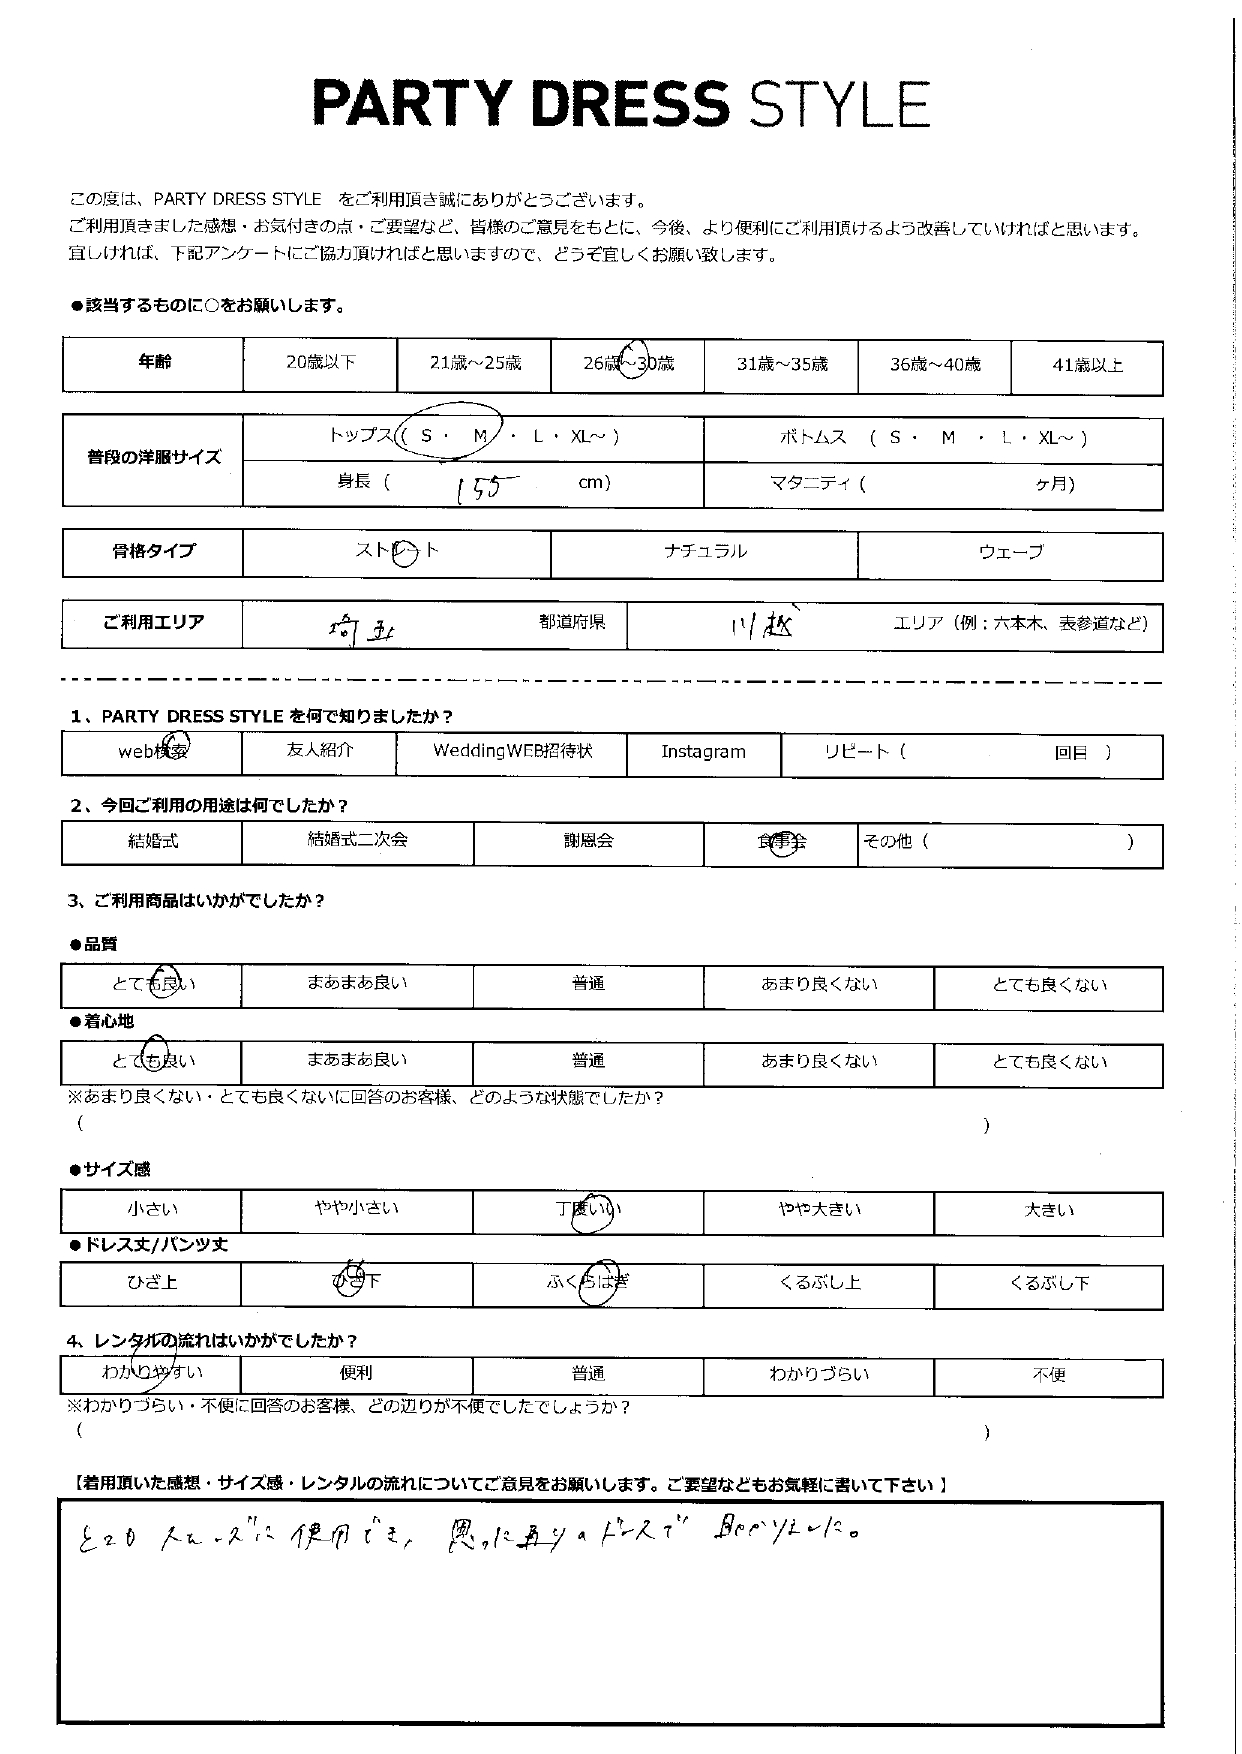 PARTY DRESS STYLE
この度は、PARTY DRESS STYLE をご利用頂き誠にありがとうございます。
ご利用頂きました感想・お気付きの点・ご要望など、皆様のご意見をもとに、今後、より便利にご利用頂けるよう改善していければと思います。
宜しければ、下記アンケートにご協力頂ければと思いますので、どうぞ宜しくお願い致します。
●該当するものに○をお願いします。
年齢 20歳以下 21歳～25歳 26歳～30歳 31歳～35歳 36歳～40歳 41歳以上
普段の洋服サイズ トップス( S ・ M ・ L ・ XL～ ) ボトムス ( S ・ M ・ L ・ XL～ )
身長 ( 155 cm) マタニティ ( ヶ月)
骨格タイプ ストレート ナチュラル ウェーブ
ご利用エリア 埼玉 都道府県 川越 エリア（例：六本木、表参道など）
1、PARTY DRESS STYLE を何で知りましたか？
web検索 友人紹介 WeddingWEB招待状 Instagram リピート ( 回目 )
2、今回ご利用の用途は何でしたか？
結婚式 結婚式二次会 謝恩会 食事会 その他 ( )
3、ご利用商品はいかがでしたか？
●品質
とても良い まあまあ良い 普通 あまり良くない とても良くない
●着心地
とても良い まあまあ良い 普通 あまり良くない とても良くない
※あまり良くない・とても良くないに回答のお客様、どのような状態でしたか？
( )
●サイズ感
小さい やや小さい 丁度いい やや大きい 大きい
●ドレス丈/パンツ丈
ひざ上 ひざ下 ふくらはぎ くるぶし上 くるぶし下
4、レンタルの流れはいかがでしたか？
わかりやすい 便利 普通 わかりづらい 不便
※わかりづらい・不便に回答のお客様、どの辺りが不便でしたでしょうか？
( )
【着用頂いた感想・サイズ感・レンタルの流れについてご意見をお願いします。ご要望などもお気軽に書いて下さい】
とても スムーズに 使用でき、 思った通りのドレスで